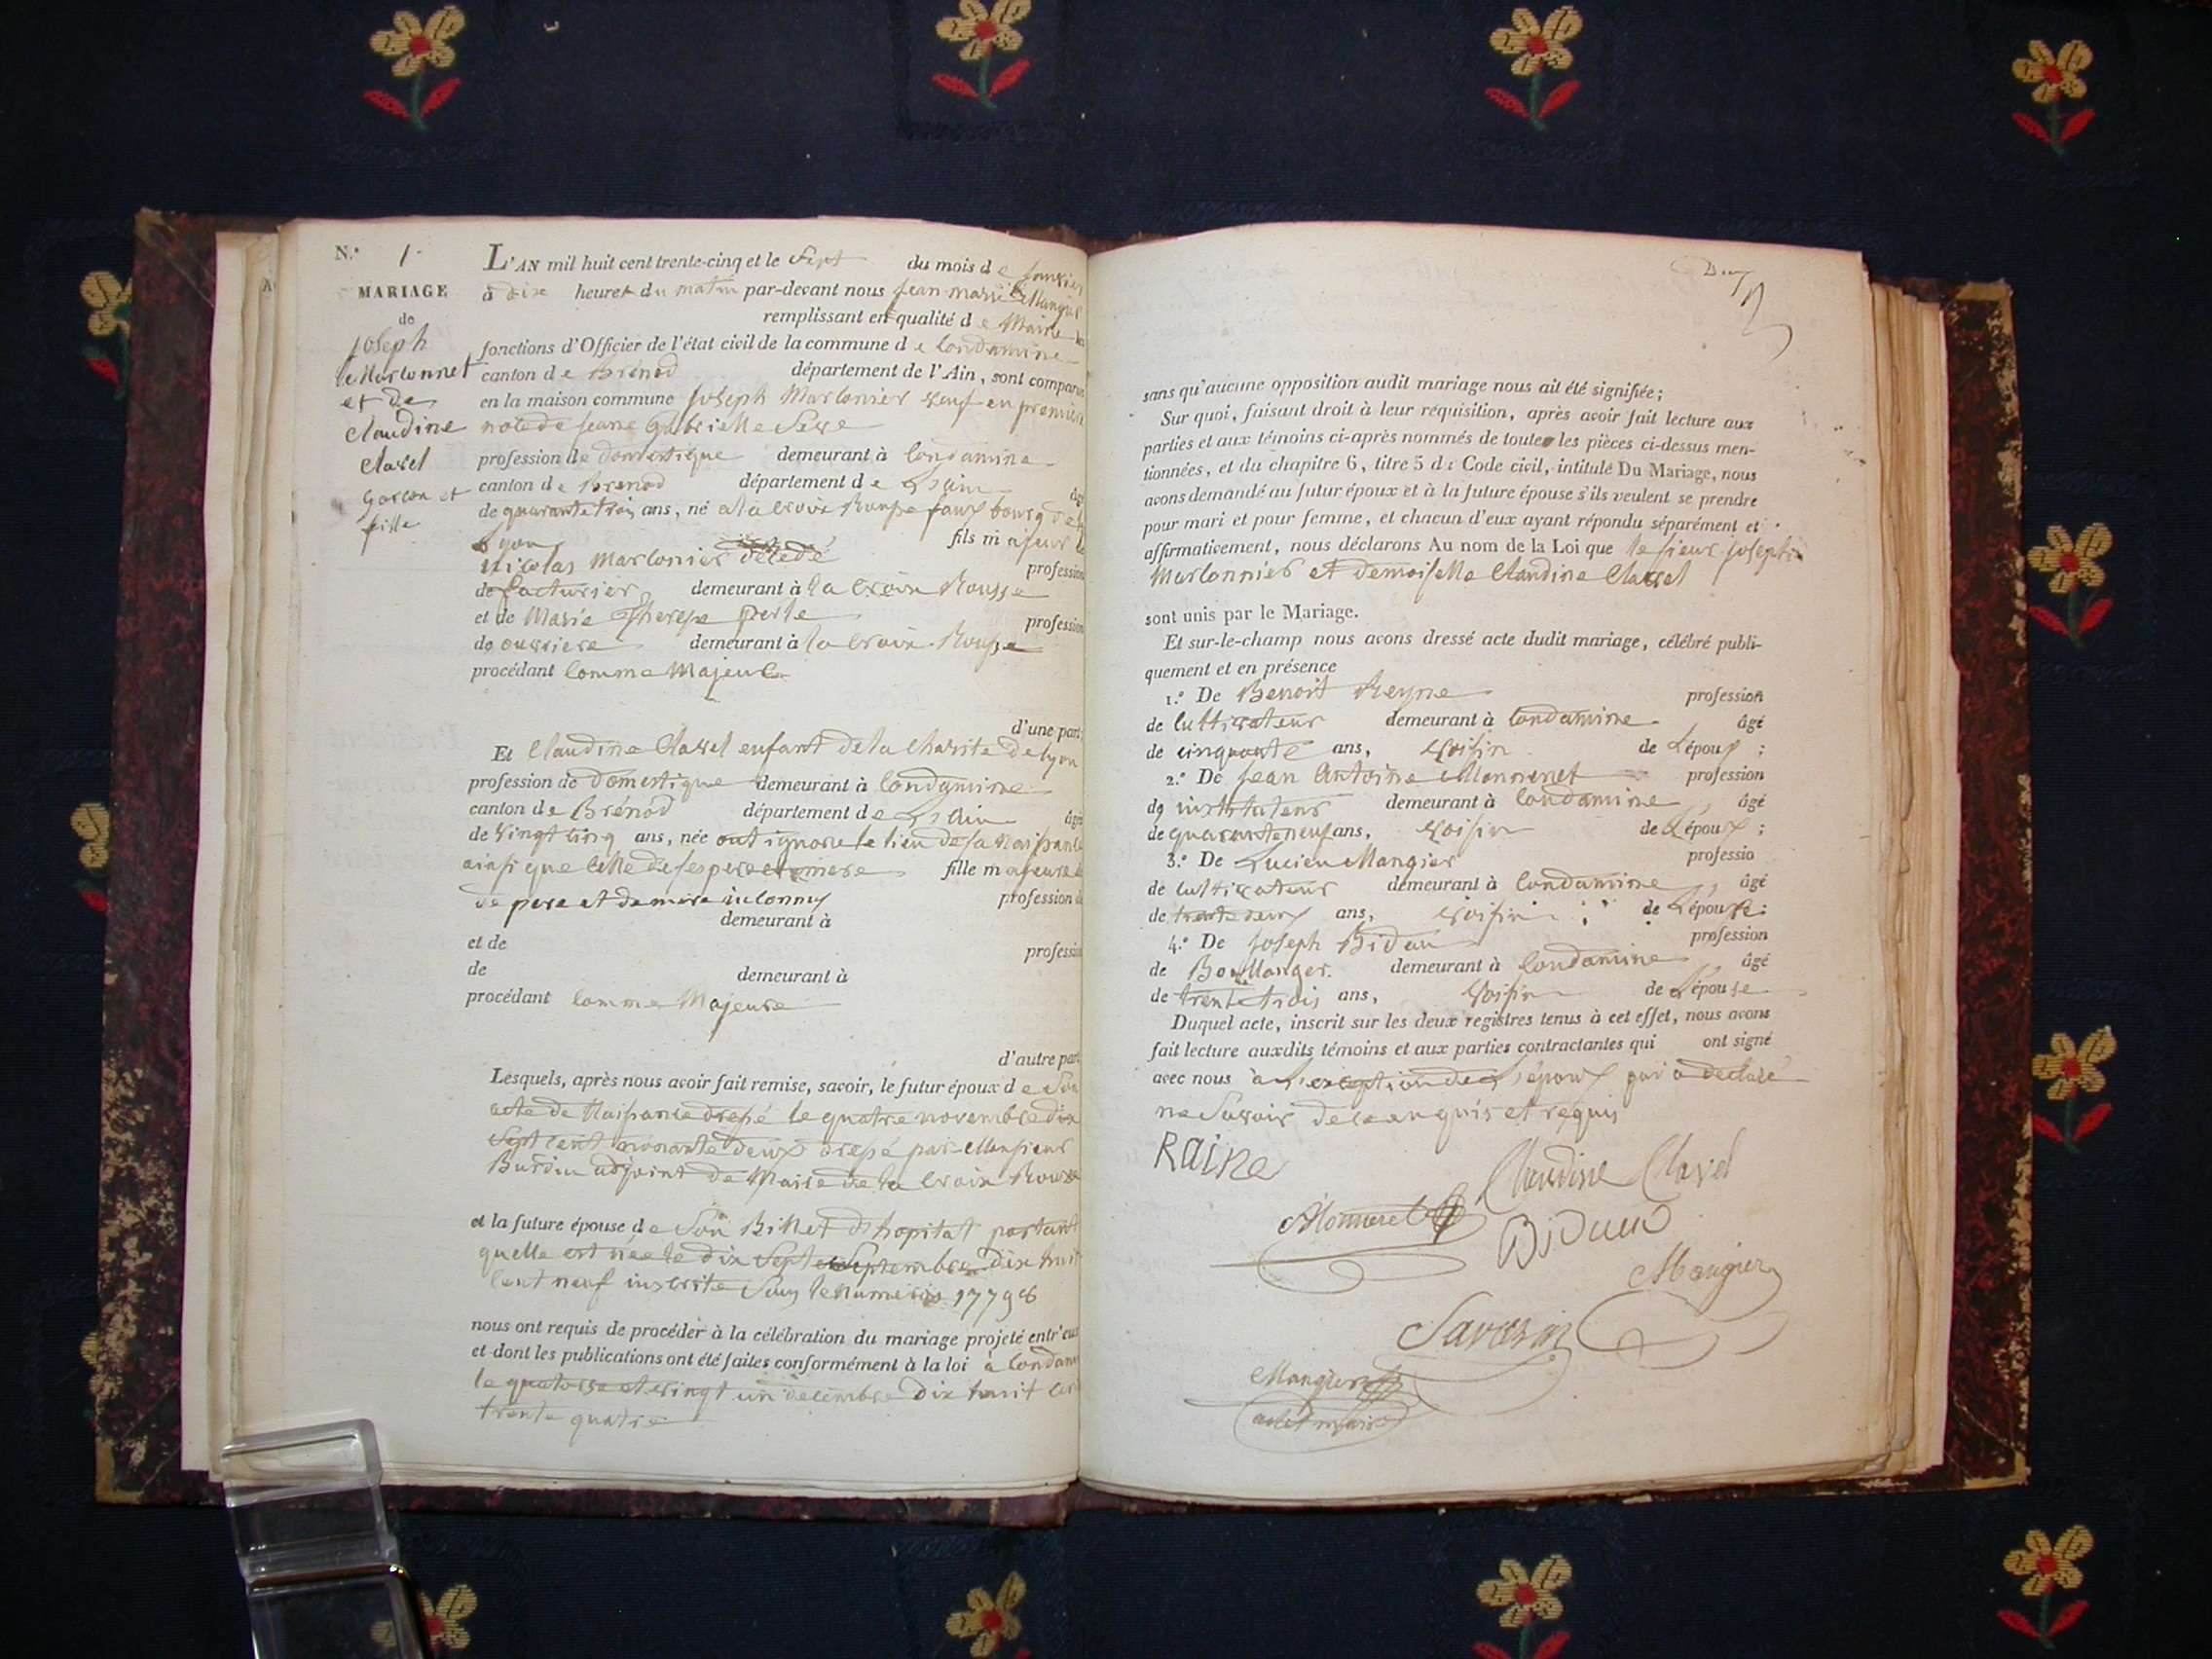 N.° 1.
MARIAGE
de
joseph
Marlonnet
et de
Claudine
Clavel
garçon et
fille
L'AN mil huit cent trente-cinq et le Sept du mois de janvier
à dixe heures du matin par-devant nous jean marie Mangier
remplissant en qualité de Maire les
fonctions d'Officier de l'état civil de la commune de Condamine
canton de Brénod département de l'Ain, sont comparus
en la maison commune joseph Marlonier veuf en premiere
de jeane Gabrielle
profession de domestique demeurant à Condamine
canton de Brenod département de L'ain âgé
de quarante trois ans, né a la Croix Rousse faux bourg de
Lyon fils majeur de
nicolas Marlonier décédé profession
de facturier demeurant à la Croix Rousse
et de Marie Therese perle profession
de ouvriere demeurant à la Croix Rousse
procédant Comme Majeur
d'une part;
Et Claudine Clavel enfant de la Charité de lyon
profession de domestique demeurant à Condamine
canton de Brénod département de L'ain âgée
de vingt cinq ans, née ont ignore le lieu de sa naissance
ainsi que celle de ses pere et mere fille majeure de
de pere et de mere inconnus profession de
demeurant à
et de profession
de demeurant à
procédant Comme Majeure
d'autre part
Lesquels, après nous avoir fait remise, savoir, le futur époux de Son
acte de Naissance dressé le quatre novembre dix
Sept cent nonante deux dressé par Monsieur
Burdin adjoint de Maire de la Croix Rousse
et la future épouse de Son Billet d'hopital portant
quelle est née le dix Sept Septembre dix huit
Cent neuf inscrite Sous le numero 17798
nous ont requis de procéder à la célébration du mariage projeté entr'eux
et dont les publications ont été faites conformément à la loi à Condam
le quatorze et vingt un décembre dix huit cent
trente quatre
Deux
sans qu'aucune opposition audit mariage nous ait été signifiée;
Sur quoi, faisant droit à leur réquisition, après avoir fait lecture aux
parties et aux témoins ci-après nommés de toutes les pièces ci-dessus men-
tionnées, et du chapitre 6, titre 5 du Code civil, intitulé Du Mariage, nous
avons demandé au futur époux et à la future épouse s'ils veulent se prendre
pour mari et pour femme, et chacun d'eux ayant répondu séparément et
affirmativement, nous déclarons Au nom de la Loi que le sieur joseph
Marlonnier et demoiselle Claudine Clavel
sont unis par le Mariage.
Et sur-le-champ nous avons dressé acte dudit mariage, célébré publi-
quement et en présence
1.° De Benoit Reyne profession
de Cultivateur demeurant à Condamine âgé
de cinquante ans, voisin de L'époux;
2.° De jean Antoine Monnenet profession
de institateur demeurant à Condamine âgé
de quarante neuf ans, voisin de L'époux;
3.° De Lucien Mangier professio
de Cultivateur demeurant à Condamine, âgé
de trente deux ans, voisin de L'épouse;
4.° De joseph Bidau profession
de Boullanger demeurant à Condamine âgé
de trente trois ans, voisin de L'épouse
Duquel acte, inscrit sur les deux registres tenus à cet effet, nous avons
fait lecture auxdits témoins et aux parties contractantes qui ont signé
avec nous à L'exception de L'époux qui a déclaré
ne Savoir de ce enquis et requis
Raine
Claudine Clavel
Monneret
Biduu
Mangier
Savarin
Mangier
maire